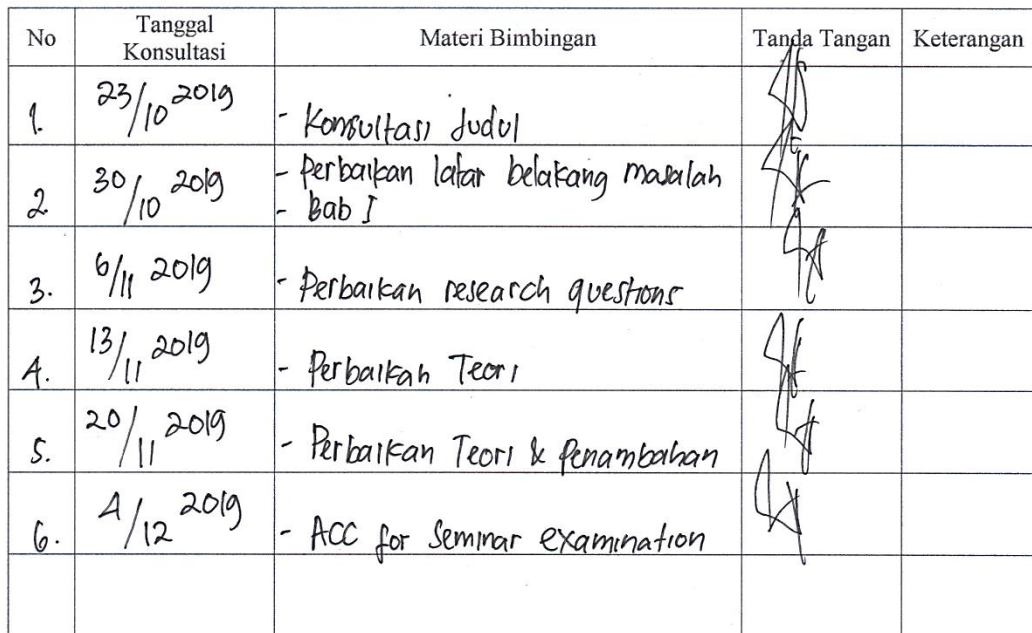 No Tanggal Konsultasi Materi Bimbingan Tanda Tangan Keterangan
1. 23/10 2019 - Konsultasi Judul
2 30/10 2019 - Perbaikan latar belakang masalah
- Bab I
3. 6/11 2019 - Perbaikan research questions
4. 13/11 2019 - Perbaikan Teori
5. 20/11 2019 - Perbaikan Teori & Penambahan
6. 4/12 2019 - ACC for Seminar examination